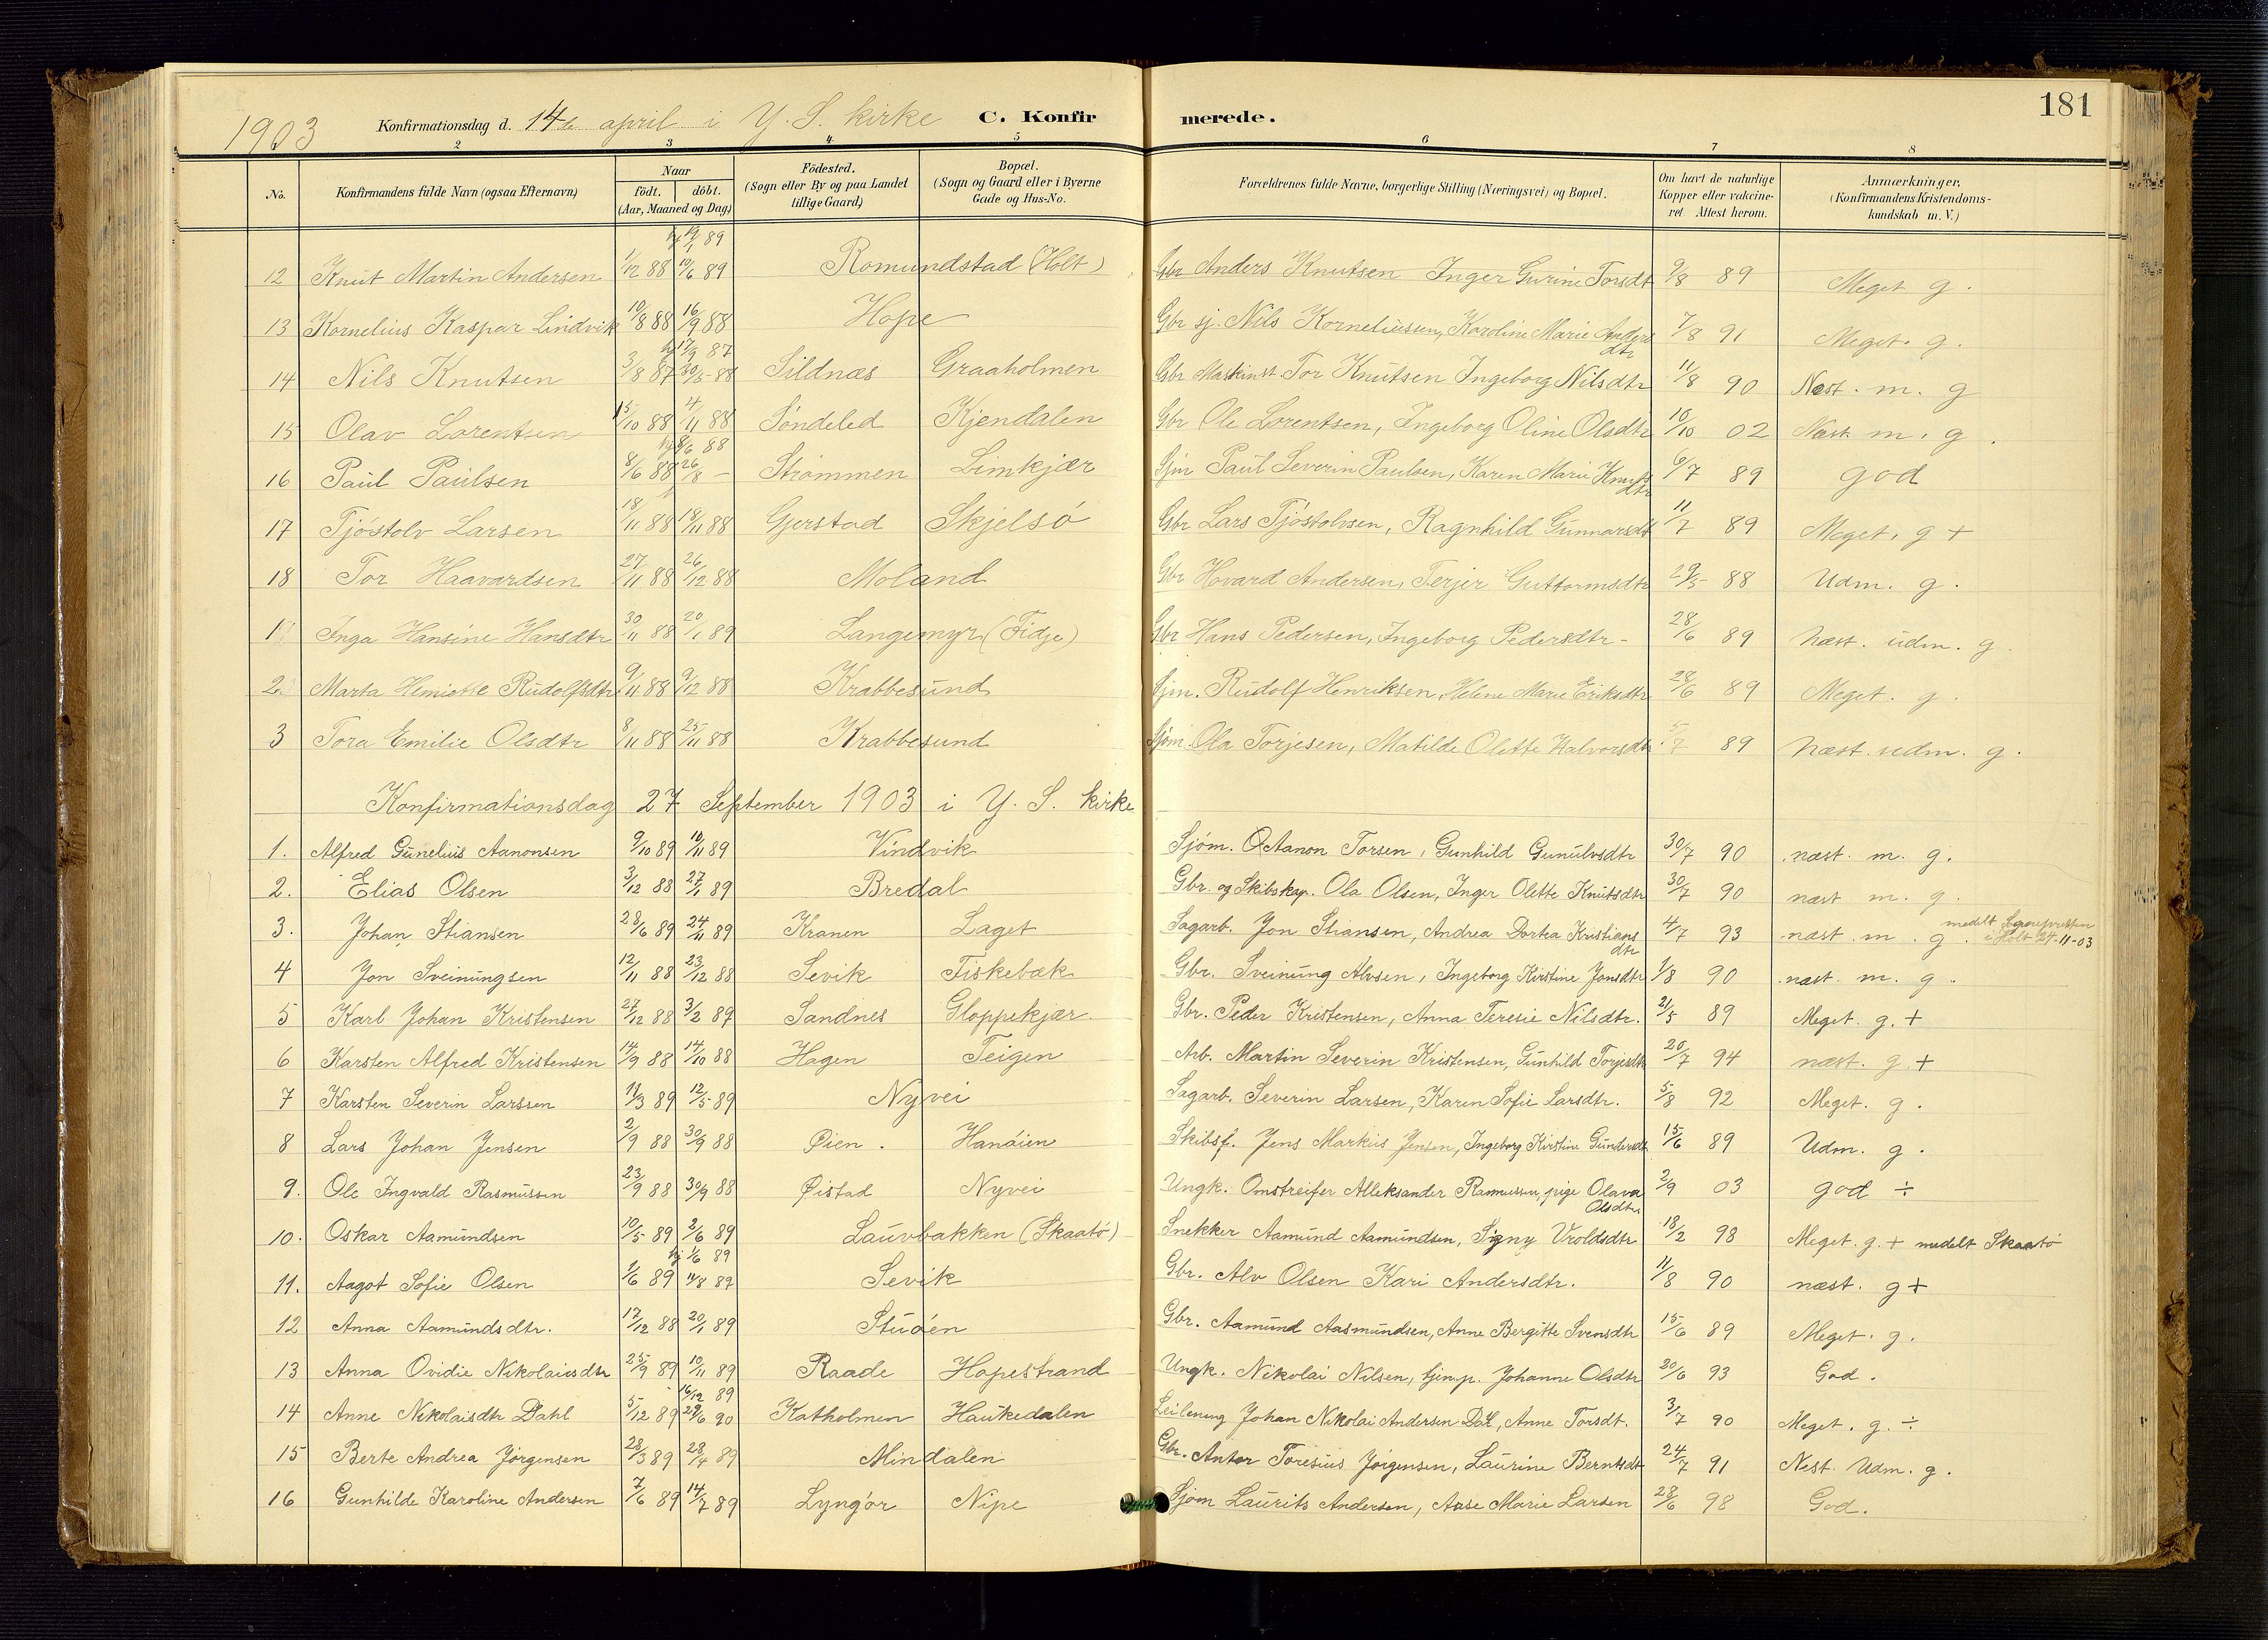 181
1903 Konfirmationsdag d. 14de april i Y. S. kirke C. Konfirmerede.
2 3 4 5 6 7 8
No. Konfirmandens fulde Navn (ogsaa Efternavn) Naar födt. döbt. (Aar, Maaned og Dag) Födested. (Sogn eller By og paa Landet tillige Gaard) Bopæl. (Sogn og Gaard eller i Byerne Gade og Hus-No. Forældrenes fulde Navne, borgerlige Stilling (Næringsvei) og Bopæl. Om havt de naturlige Kopper eller vakcineret Attest herom. Anmærkninger, (Konfirmandens Kristendomskundskab m. V.)
hj 19/1 89
12 Knut Martin Andersen 1/12 88 10/6 89 Romundstad (Holt) Gbr Anders Knutsen Inger Gurine Torsdt 9/8 89 Meget g.
13 Kornelius Kaspar Lindvik 10/8 88 16/9 88 Hope Gbr sj. Nils Korneliussen, Karoline Marie Andersdtr 7/8 91 Meget. g.
hj 17/9 87
14 Nils Knutsen 3/8 87 30/5 88 Sildnæs Graaholmen Gbr Maskinst. Tor Knutsen Ingeborg Nilsdtr 11/8 90 Næst. m. g
15 Olav Lorentsen 15/10 88 4/11 88 Söndeled Kjendalen Gbr Ole Lorentsen, Ingeborg Oline Olsdtr 10/10 02 Næst m. g.
hj 8/6 88
16 Paul Paulsen 8/6 88 26/8 – Strømmen Limkjær Sjm Paul Severin Paulsen, Karen Marie Knutsdtr 6/7 89 god
17 Tjöstolv Larsen 18/11 88 18/11 88 Gjerstad Skjelsö Gbr Lars Tjöstolvsen, Ragnhild Gunnarsdt 11/7 89 Meget. g +
18 Tor Haavardsen 27/11 88 26/12 88 Moland Gbr Hovard Andersen, Terjer Guttormsdtr 29/5 88 Udm. g.
1 Inga Hansine Hansdtr 30/11 88 20/1 89 Langemyr (Fidje) Gbr Hans Pedersen, Ingeborg Pedersdtr- 28/6 89 Næst. udm. g.
2 Marta Henriette Rudolfsdtr 9/11 88 9/12 88 Krabbesund Sjm. Rudolf Henriksen, Helene Marie Eriksdtr 28/6 89 Meget. g.
3 Tora Emilie Olsdtr 8/11 88 25/11 88 Krabbesund Sjøm. Ola Torjesen, Matilde Olette Halvorsdtr. 5/7 89 Næst. udm. g.
Konfirmationsdag 27 September 1903 i Y. S. kirke
1. Alfred Gunelius Aanonsen 9/10 89 10/11 89 Vindvik Sjöm. Aanon Torsen, Gunhild Gunulvsdtr 30/7 90 næst. m. g.
2. Elias Olsen 3/12 88 27/1 89 Bredal Gbr. og Skibskap. Ola Olsen, Inger Olette Knutsdtr 30/7 90 næst m. g.
3. Johan Stiansen 28/6 89 24/11 89 Kranen Laget Sagarb. Jon Stiansen, Andrea Dortea Kristiansdtr 4/7 93 næst. m. g. medelt Sognepresten i Holt 24-11-03
4 Jon Sveinungsen 12/11 88 23/12 88 Sevik Fiskebæk Gbr. Sveinung Alvsen, Ingeborg Kirstine Jonsdtr 1/8 90 næst. m. g.
5 Karl Johan Kristensen 27/12 88 3/2 89 Sandnes Gloppekjær Gbr. Peder Kristensen, Anna Teresie Nilsdtr. 21/5 89 Meget. g. +
6 Karsten Alfred Kristensen 14/9 88 14/10 88 Hagen Teigen Arb. Martin Severin Kristensen, Gunhild Torjesdtr 20/7 94 næst. g. +
7 Karsten Severin Larssen 11/3 89 12/5 89 Nyvei Sagarb. Severin Larsen, Karen Sofie Larsdtr. 5/8 92 Meget. g.
8 Lars Johan Jensen 2/9 88 30/9 88 Øien. Hanöien Skibsf. Jens Markus Jensen, Ingeborg Kirstine Gundersdtr 15/6 89 Udm. g.
9. Ole Ingvald Rasmussen 23/9 88 30/9 88 Øistad Nyvei Ungk. Omstreifer Alleksander Rasmussen, pige Olava Olsdtr. 2/9 03 god ÷
10. Oskar Aamundsen 10/5 89 2/6 89 Lauvbakken (Skaatö) Snekker Aamund Aamundsen, Signy Vroldsdtr 18/2 98 Meget. g. + medelt Skaatö
hj 1/6 89
11. Aagot Sofie Olsen 1/6 89 11/8 89 Sevik Gbr. Alv Olsen Kari Andersdtr. 11/8 90 næst. g +
12 Anna Aamundsdtr. 17/12 88 20/1 89 Studén Gbr. Aamund Aasmundsen, Anne Bergitte Svensdtr 15/6 89 Meget. g.
13 Anna Ovidie Nikolaisdtr 25/9 89 10/11 89 Raade Hopestrand Ungk. Nikolai Nilsen, tjen.p. Johanne Olsdtr 20/6 93 God.
16/12 89
14 Anne Nikolaisdtr Dahl 5/12 89 29/6 90 Katholmen Haukedalen Leilening Johan Nikolai Andersen Dal, Anne Torsdt. 3/7 90 Meget. g. ÷
15 Berte Andrea Jörgensen 28/3 89 28/4 89 Mindalen Gbr. Anton Toresius Jörgensen, Laurine Berntsdt 24/7 91 Nest. Udm. g.
16 Gunhilde Karoline Andersen 7/6 89 14/7 89 Lyngör Nipe Sjöm Laurits Andersen, Aase Marie Larsen 28/6 98 God.